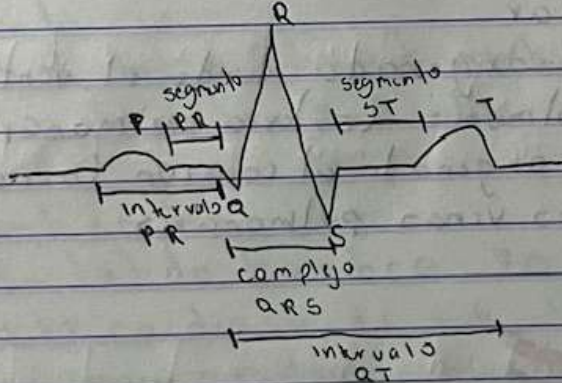 R
segmento
PR
P
segmento
ST
T
intervalo
PR
Q
S
complejo
QRS
intervalo
QT